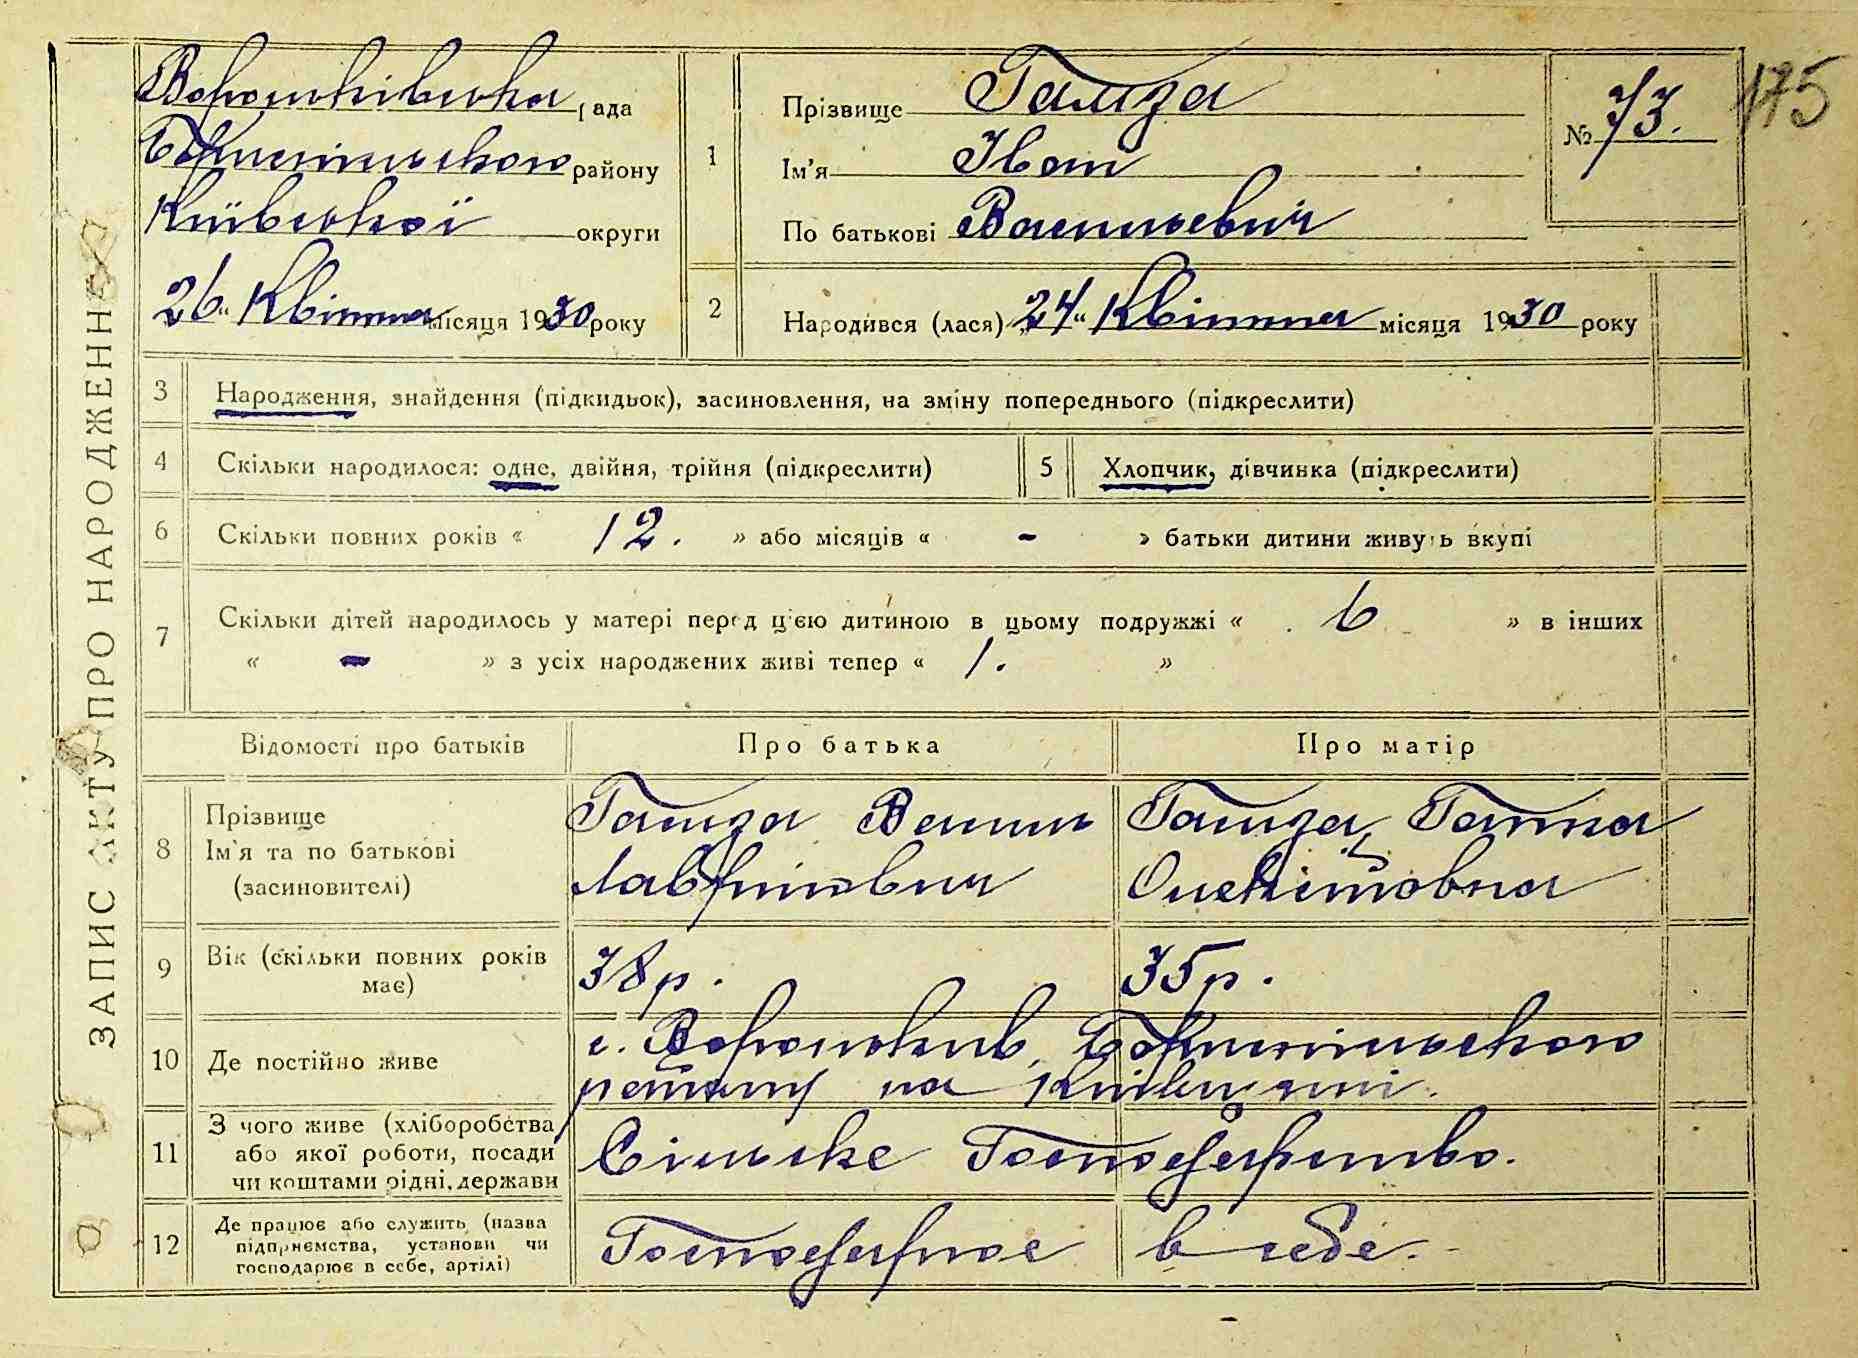 ЗАПИС АКТУ ПРО НАРОДЖЕННЯ
Вороньківська рада
Бориспільського району
Київської округи
„26“ Квітня місяця 1930 року
1
Прізвище Гамза
Ім'я Іван
По батькові Васильевич
№ 73.
175
2
Народився (лася) „24“ Квітня місяця 1930 року
3 Народження, знайдення (підкидьок), засиновлення, на зміну попереднього (підкреслити)
4 Скільки народилося: одне, двійня, трійня (підкреслити) 5 Хлопчик, дівчинка (підкреслити)
6 Скільки повних років « 12. » або місяців « - » батьки дитини живуть вкупі
7 Скільки дітей народилось у матері перед ц'єю дитиною в цьому подружжі « 6 » в інших
« - » з усіх народжених живі тепер « 1. »
Відомості про батьків Про батька Про матір
8 Прізвище
Ім'я та по батькові
(засиновителі)
Гамза Василь
Лаврінович
Гамза, Ганна
9 Вік (скільки повних років
має)
38 р.
35 р.
10 Де постійно живе
с. Вороньків, Бориспільского
району на Київщині.
11 З чого живе (хліборобства
або якої роботи, посади
чи коштами рідні, держави
Сільске Господарство.
12 Де працює або служить (назва
підприємства, установи чи
господарює в себе, артілі)
Господарює в себе.